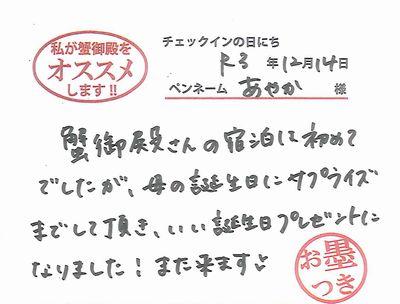 私が蟹御殿を
オススメ
します!!
チェックインの日にち
R3 年12月14日
ペンネーム あやか 様
蟹御殿さんの宿泊は初めて
でしたが、母の誕生日にサプライズ
までして頂き、いい誕生日プレゼントに
なりました！また来ます♪
お墨
つき